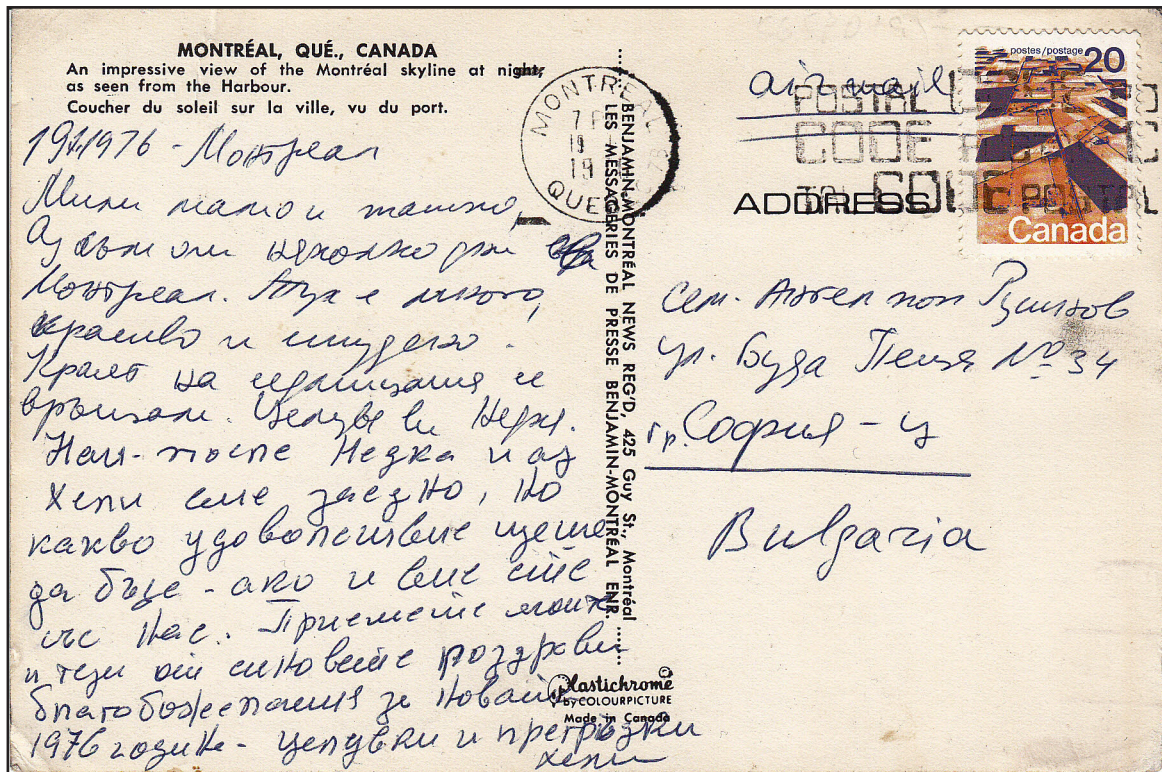 MONTRÉAL, QUÉ., CANADA
An impressive view of the Montréal skyline at night,
as seen from the Harbour.
Coucher du soleil sur la ville, vu du port.
1976 - Монтреал
Мили мамо и татко,
Аз съм от няколко дни в
Монтреал. Тук е много
красиво и студено.
Краят на
връщам. Целува ви Нери.
Най-после Недка и аз
Хепи сме заедно, но
какво удоволствие щеше
да бъде - ако и вие сте
със нас. Приемете моите
и тези от синовете поздрави
благопожелания за новата
1976 година - целувки и прегръдки
Хепи
BENJAMIN-MONTRÉAL NEWS REG'D, 425 Guy St., Montréal
LES MESSAGERIES DE PRESSE BENJAMIN-MONTRÉAL ENR.
Plastichrome
BY COLOURPICTURE
Made in Canada
MONTREAL
19
QUE
air mail
POSTAL CODE
postes/postage 20
Canada
ADDRESS
сем. Ангел поп
ул. Буда Пеща № 34
гр. София - ц
Bulgaria